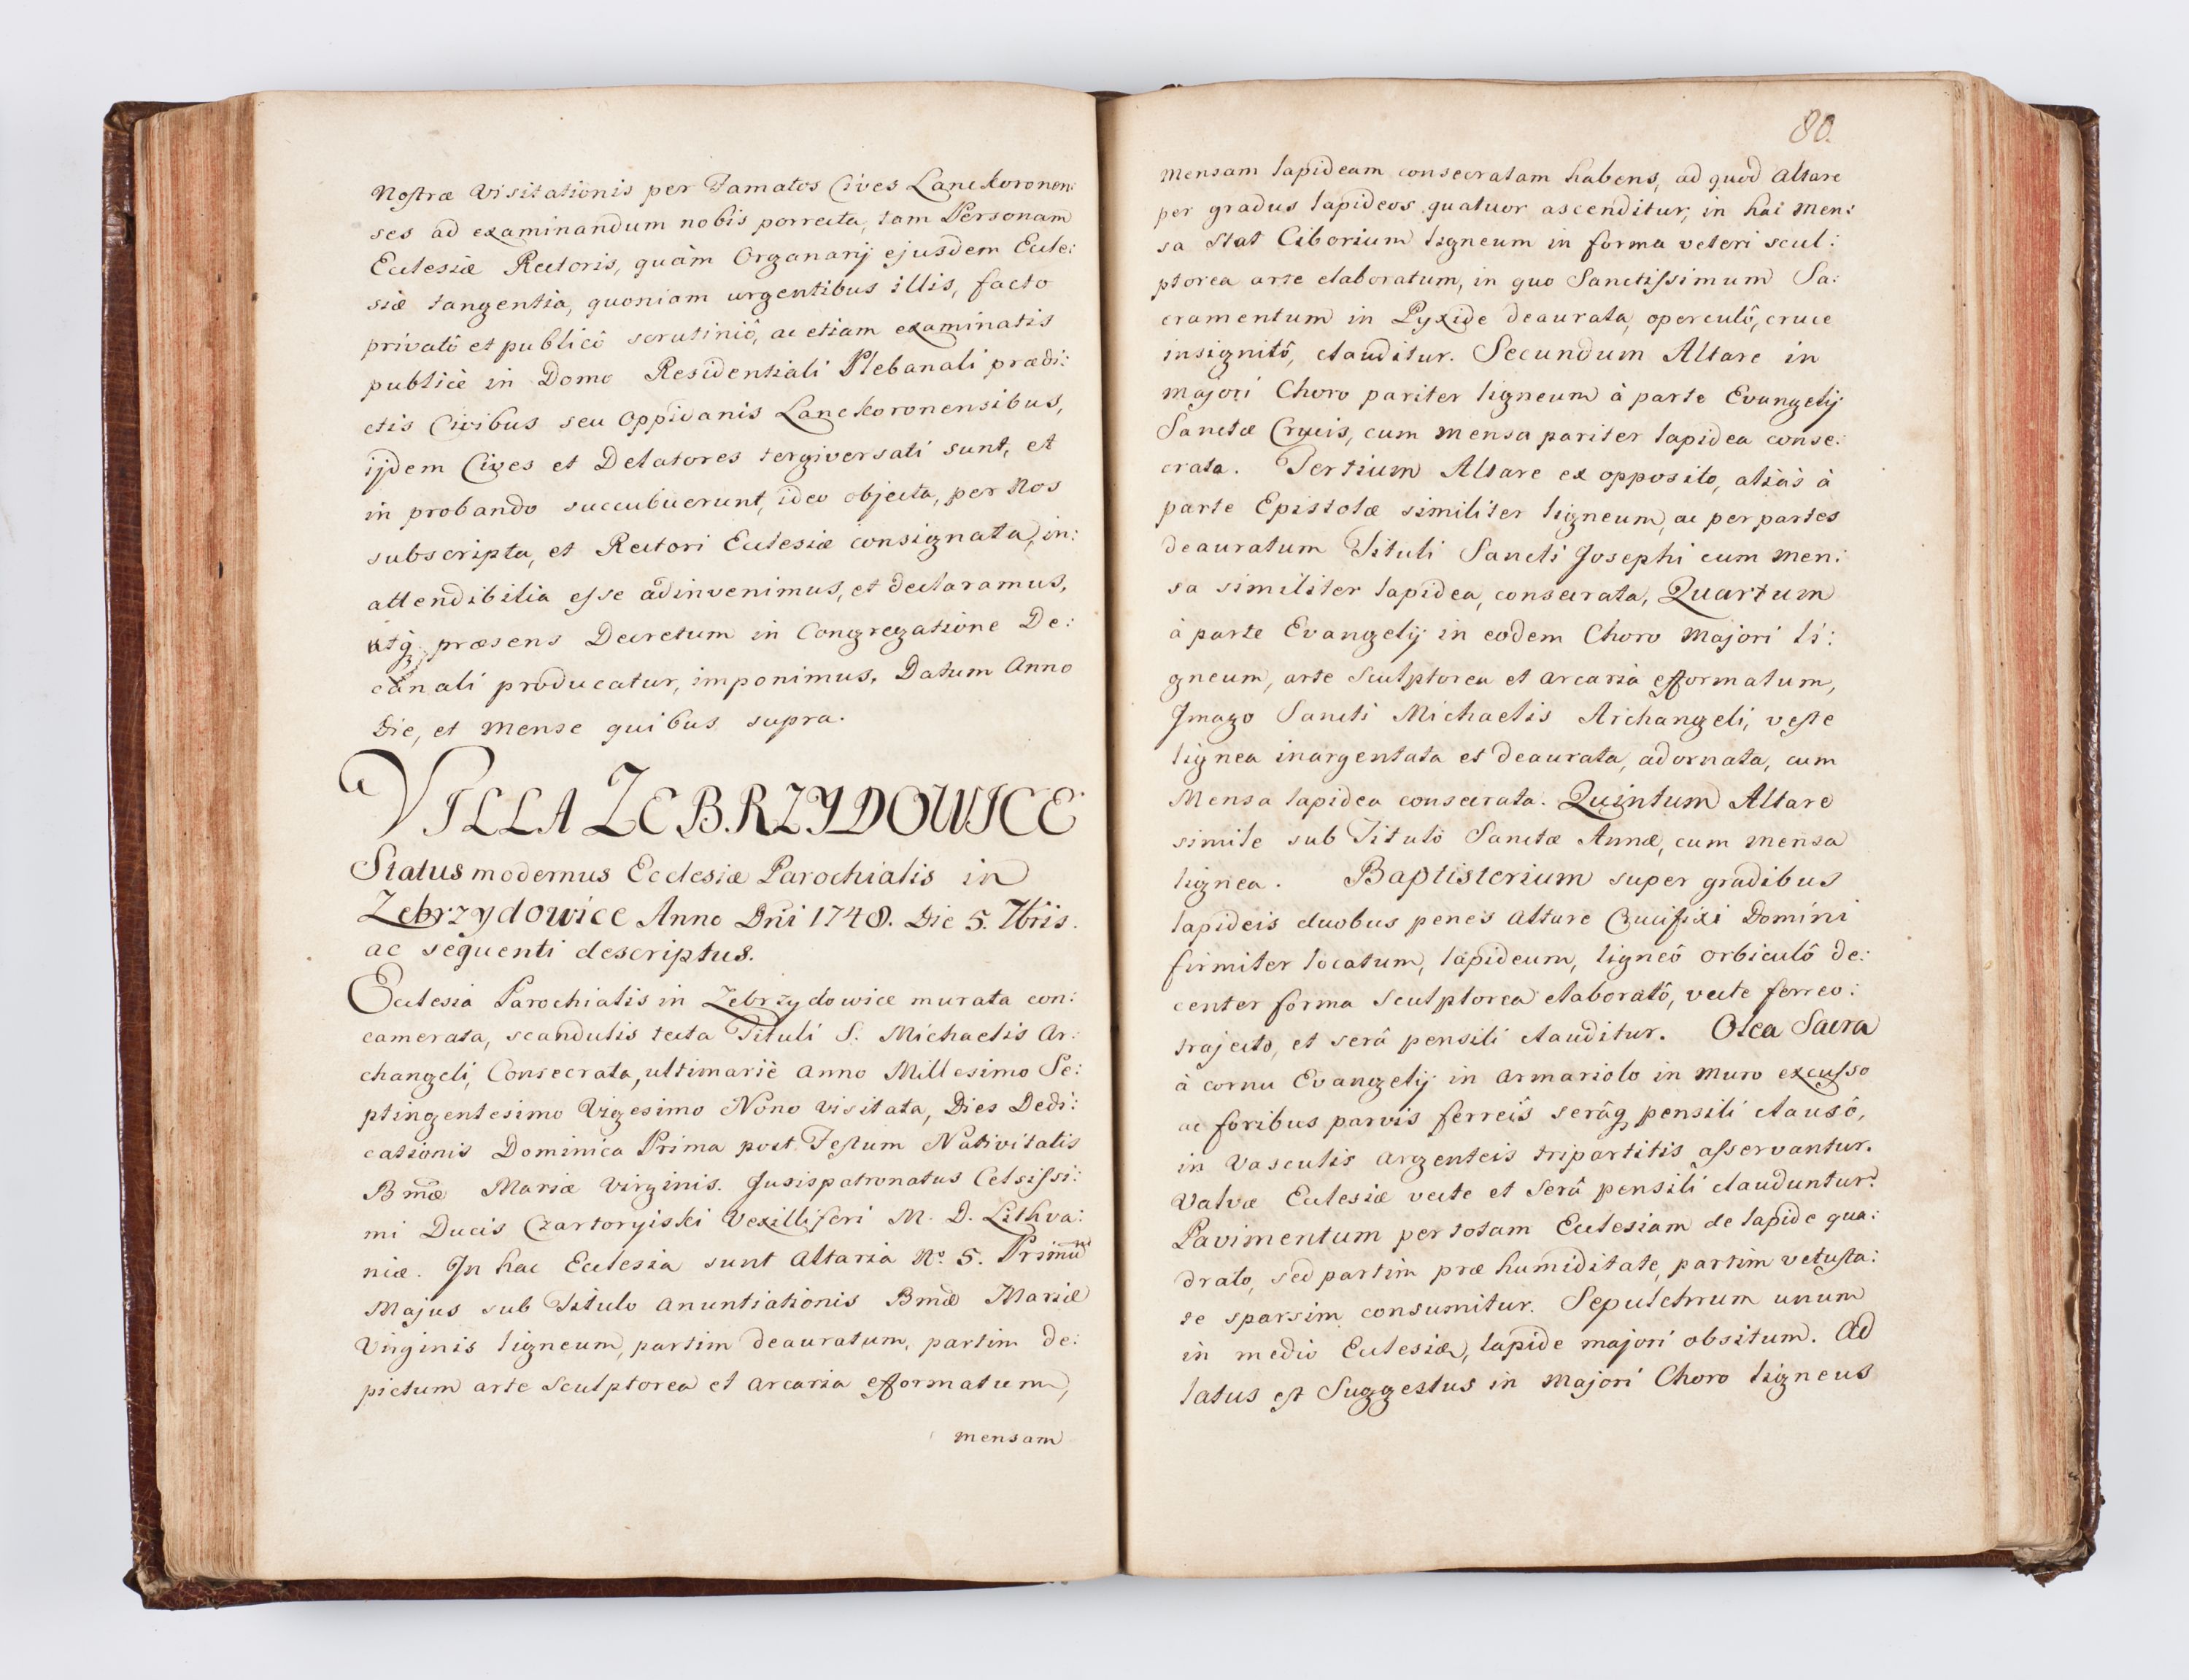 Nostræ Visitationis per Famatos Cives Lanckoronen:
ses ad examinandum nobis porrecta, tam Personam
Ecclesiæ Rectoris, quàm Organarij ejusdem Eccle:
siæ tangentia, quoniam urgentibus illis, facto
privatô et publicô scrutiniô, ac etiam examinatis
publicè in Domo Residentiali Plebanali prædi:
ctis Civibus seu Oppidanis Lanckoronensibus,
ijdem Cives et Delatores tergiversati sunt, et
in probando succubuerunt, ideo objecta, per Nos
subscripta, et Rectori Ecclesiæ consignata, in:
attendibilia esse adinvenimus, et declaramus,
utq præsens Decretum in Congregatione De:
canali producatur, imponimus. Datum Anno
Die, et Mense quibus supra.
VILLA ZEBRZYDOWICE
Status modernus Ecclesiæ Parochialis in
Zebrzydowice Anno Dni 1748. Die 5. 7bris.
ac sequenti descriptus.
Ecclesia Parochialis in Zebrzydowice murata con:
camerata, scandulis tecta Tituli S. Michaelis Ar:
changeli, Consecrata, ultimariè Anno Millesimo Se:
ptingentesimo Vigesimo Nono visitata, Dies Dedi:
cationis Dominica Prima post Festum Nativitatis
Bmæ Mariæ Virginis. Jusispatronatus Celsissi:
mi Ducis Czartoryiski Vexilliferi M. D. Lithva:
niæ. In hac Ecclesia sunt Altaria No. 5. Primum
Majus sub Titulo Anuntiationis Bmæ Mariæ
Virginis ligneum, partim deauratum, partim de:
pictum arte Sculptorea et Arcaria efformatum,
mensam
80.
Mensam lapideam consecratam habens, ad quod Altare
per gradus lapideos quatuor ascenditur, in hac Men:
sa stat Ciborium ligneum in forma veteri scul:
ptorea arte elaboratum, in quo Sanctissimum Sa:
cramentum in Pyxide deaurata, operculô, cruce
insignitô, clauditur. Secundum Altare in
majori Choro pariter ligneum à parte Evangelij
Sanctæ Crucis, cum mensa pariter lapidea conse:
crata. Tertium Altare ex opposito, aliàs à
parte Epistolæ similiter ligneum, ac per partes
deauratum Tituli Sancti Josephi cum men:
sa similiter lapidea, consecrata, Quartum
à parte Evangelij in eodem Choro Majori li:
gneum, arte Sculptorea et Arcaria efformatum,
Imago Sancti Michaelis Archangeli, veste
lignea inargentata et deaurata, adornata, cum
Mensa lapidea consecrata. Quintum Altare
simile sub Titulô Sanctæ Annæ, cum mensa
lignea. Baptisterium super gradibus
lapideis duobus penes Altare Crucifixi Domini
firmiter locatum, lapideum, ligneô orbiculô de:
center forma Sculptorea elaboratô, vecte ferreo:
trajecto, et serâ pensili clauditur. Olea Sacra
à cornu Evangelij in Armariolo in muro excusso
ac foribus parvis ferreis serâq pensili clausô,
in Vasculis argenteis tripartitis asservantur.
Valvæ Ecclesiæ vecte et serâ pensili clauduntur.
Pavimentum per totam Ecclesiam de lapide qua:
drato, sed partim præ humiditate, partim vetusta:
te sparsim consumitur. Sepulchrum unum
in medio Ecclesiæ, lapide majori obsitum. Ad
latus est Suggestus in Majori Choro ligneus